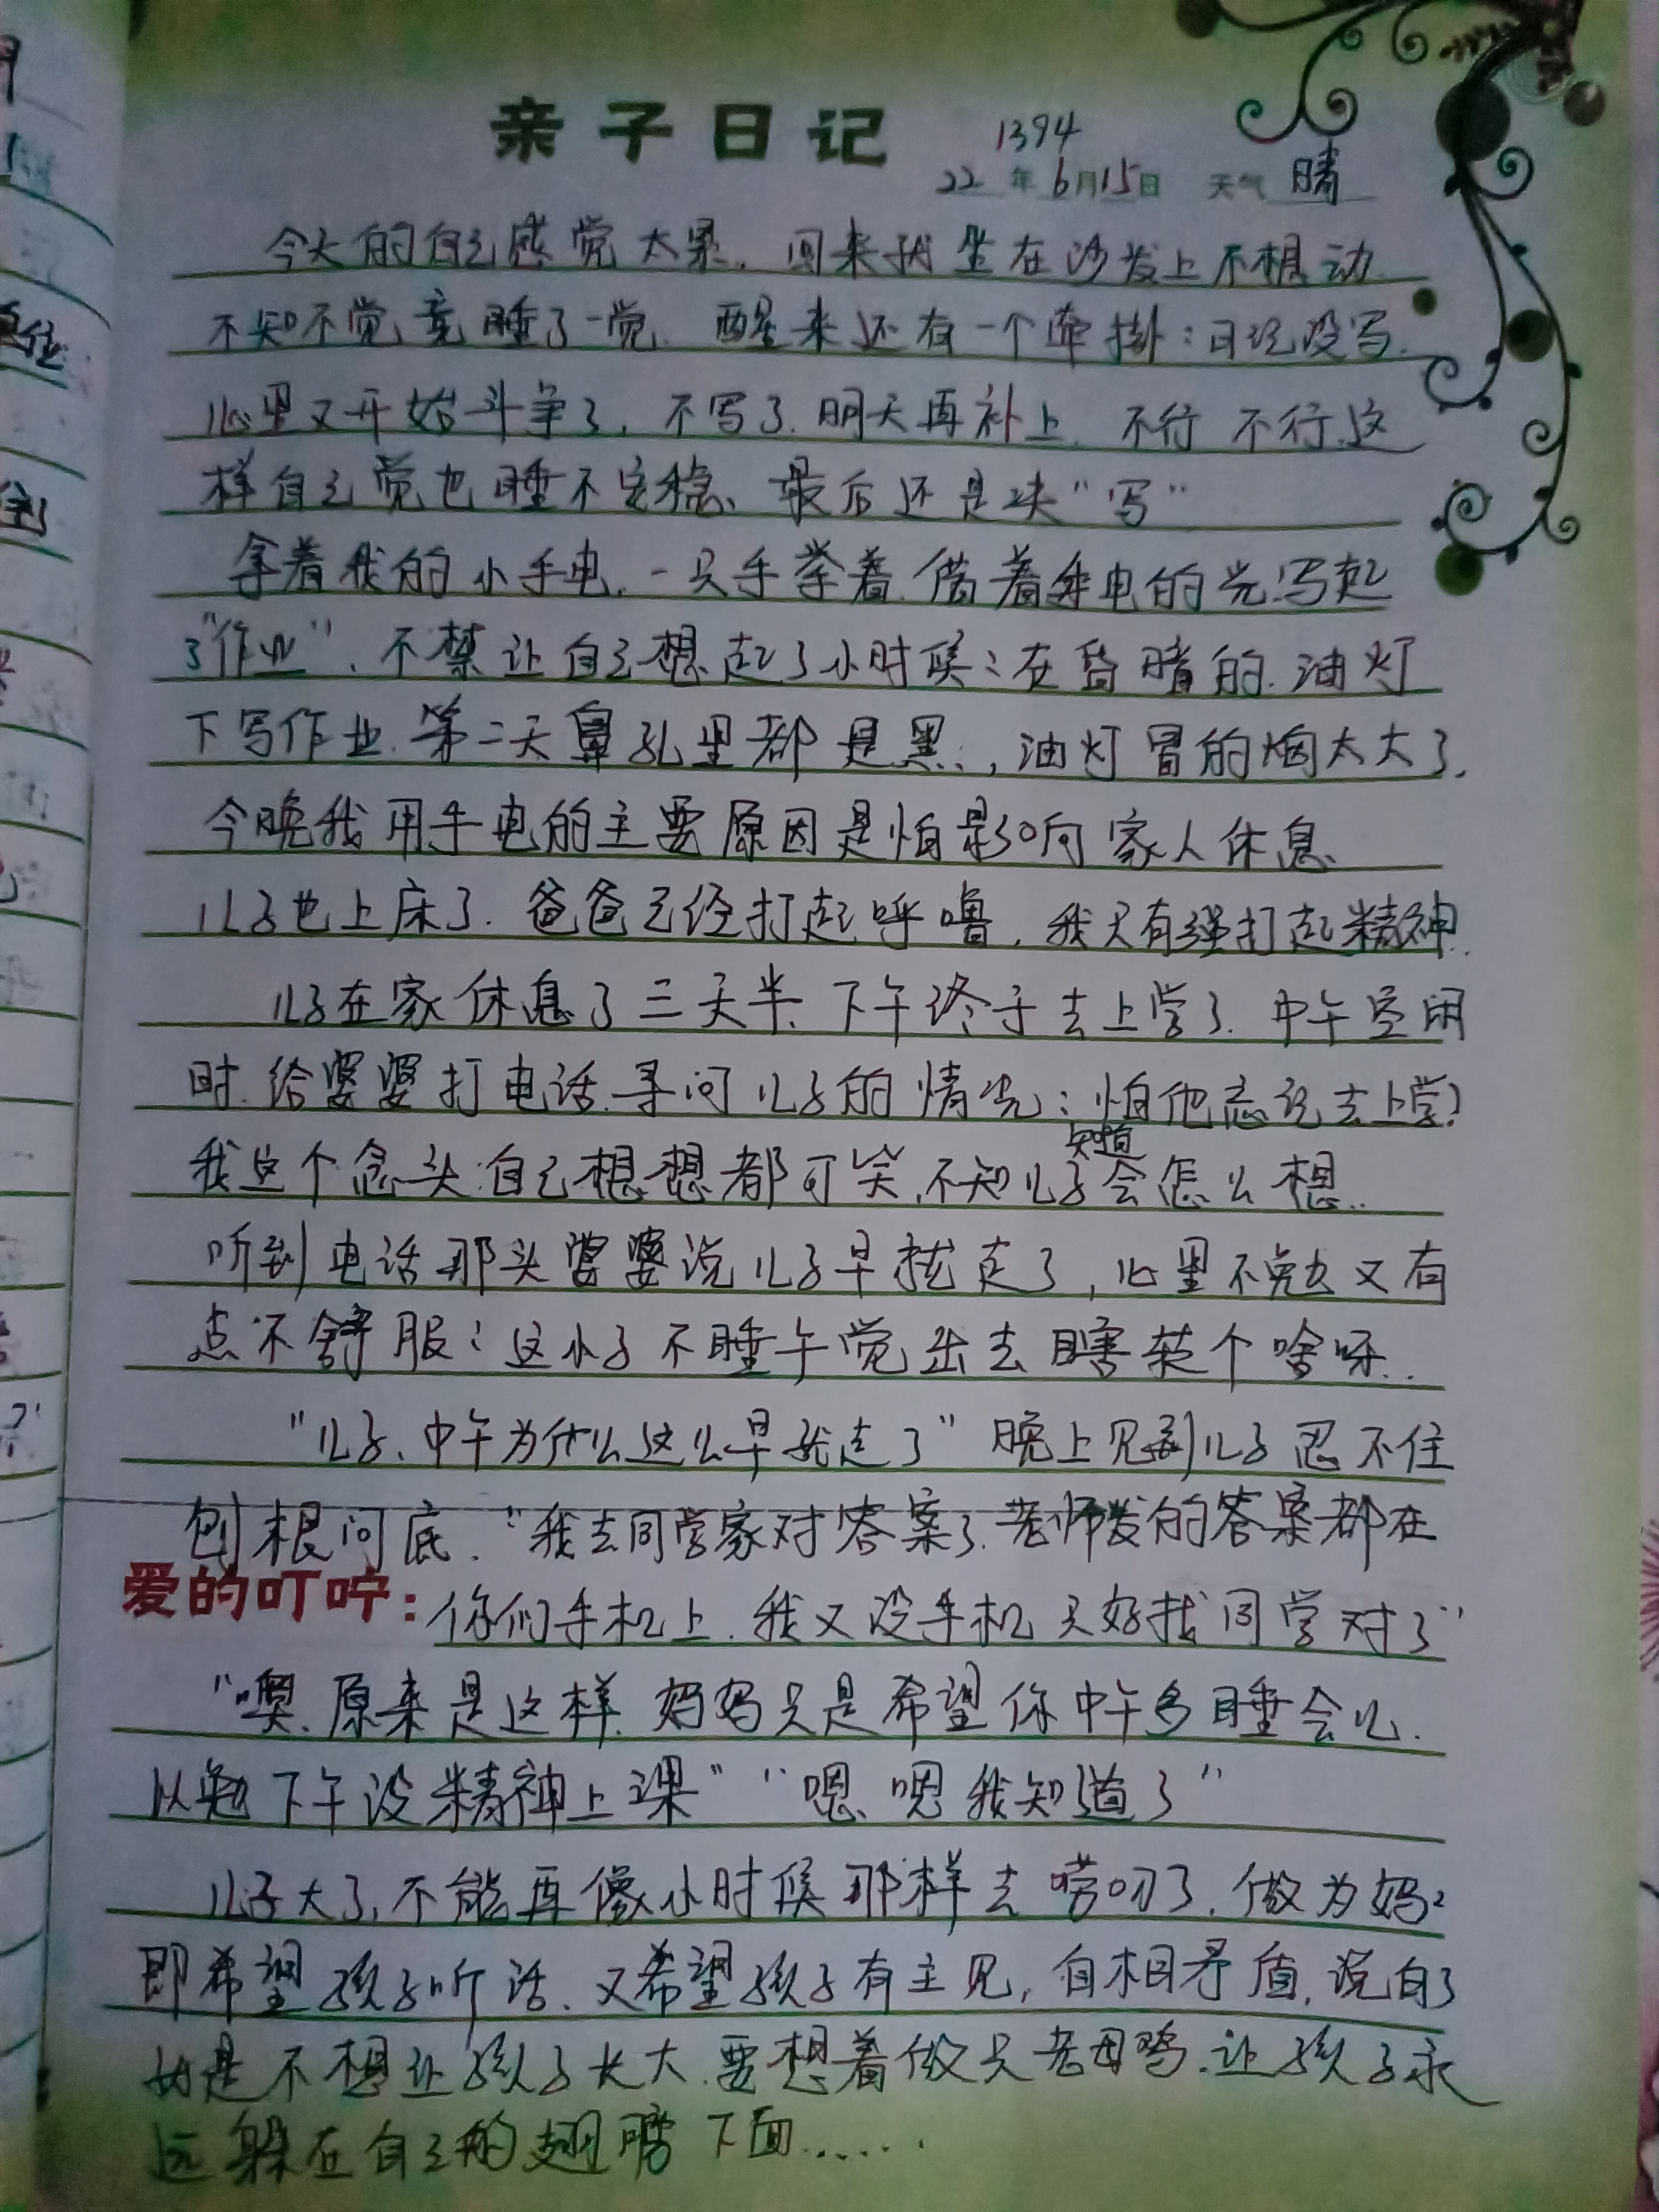 亲子日记
1394
22年6月15日 天气 晴
今天的自己感觉太累，回来我坐在沙发上不想动
不知不觉竟睡了一觉。醒来还有一个牵挂：日记没写。
心里又开始斗争了，不写了，明天再补上，不行不行，这
样自己觉也睡不安稳、最后还是决“写”
拿着我的小手电，一只手举着，借着手电的光写起
了“作业”，不禁让自己想起了小时候：在昏暗的油灯
下写作业，第二天鼻孔里都是黑，油灯冒的烟太大了，
今晚我用手电的主要原因是怕影响家人休息、
儿子也上床了，爸爸已经打起呼噜，我只有强打起精神。
儿子在家休息了三天半、下午终于去上学了，中午空闲
时，给婆婆打电话，寻问儿子的情况：怕他忘记去上学？
我这个念头自己想想都可笑，不知儿子知道会怎么想..
听到电话那头婆婆说儿子早就走了，心里不免又有
点不舒服：这小子不睡午觉出去瞎转个啥呀..
“儿子、中午为什么这么早就走了”晚上见到儿子忍不住
刨根问底，“我去同学家对答案了，老师发的答案都在
爱的叮咛：
你们手机上，我又没手机只好找同学对了”
“噢、原来是这样，妈妈只是希望你中午多睡会儿，
以免下午没精神上课” “嗯、嗯我知道了”
儿子大了，不能再像小时候那样去唠叨了，做为妈：
即希望孩子听话、又希望孩子有主见，自相矛盾，说白了
就是不想让孩子长大，要想着做只老母鸡，让孩子永
远躲在自己的翅膀下面......